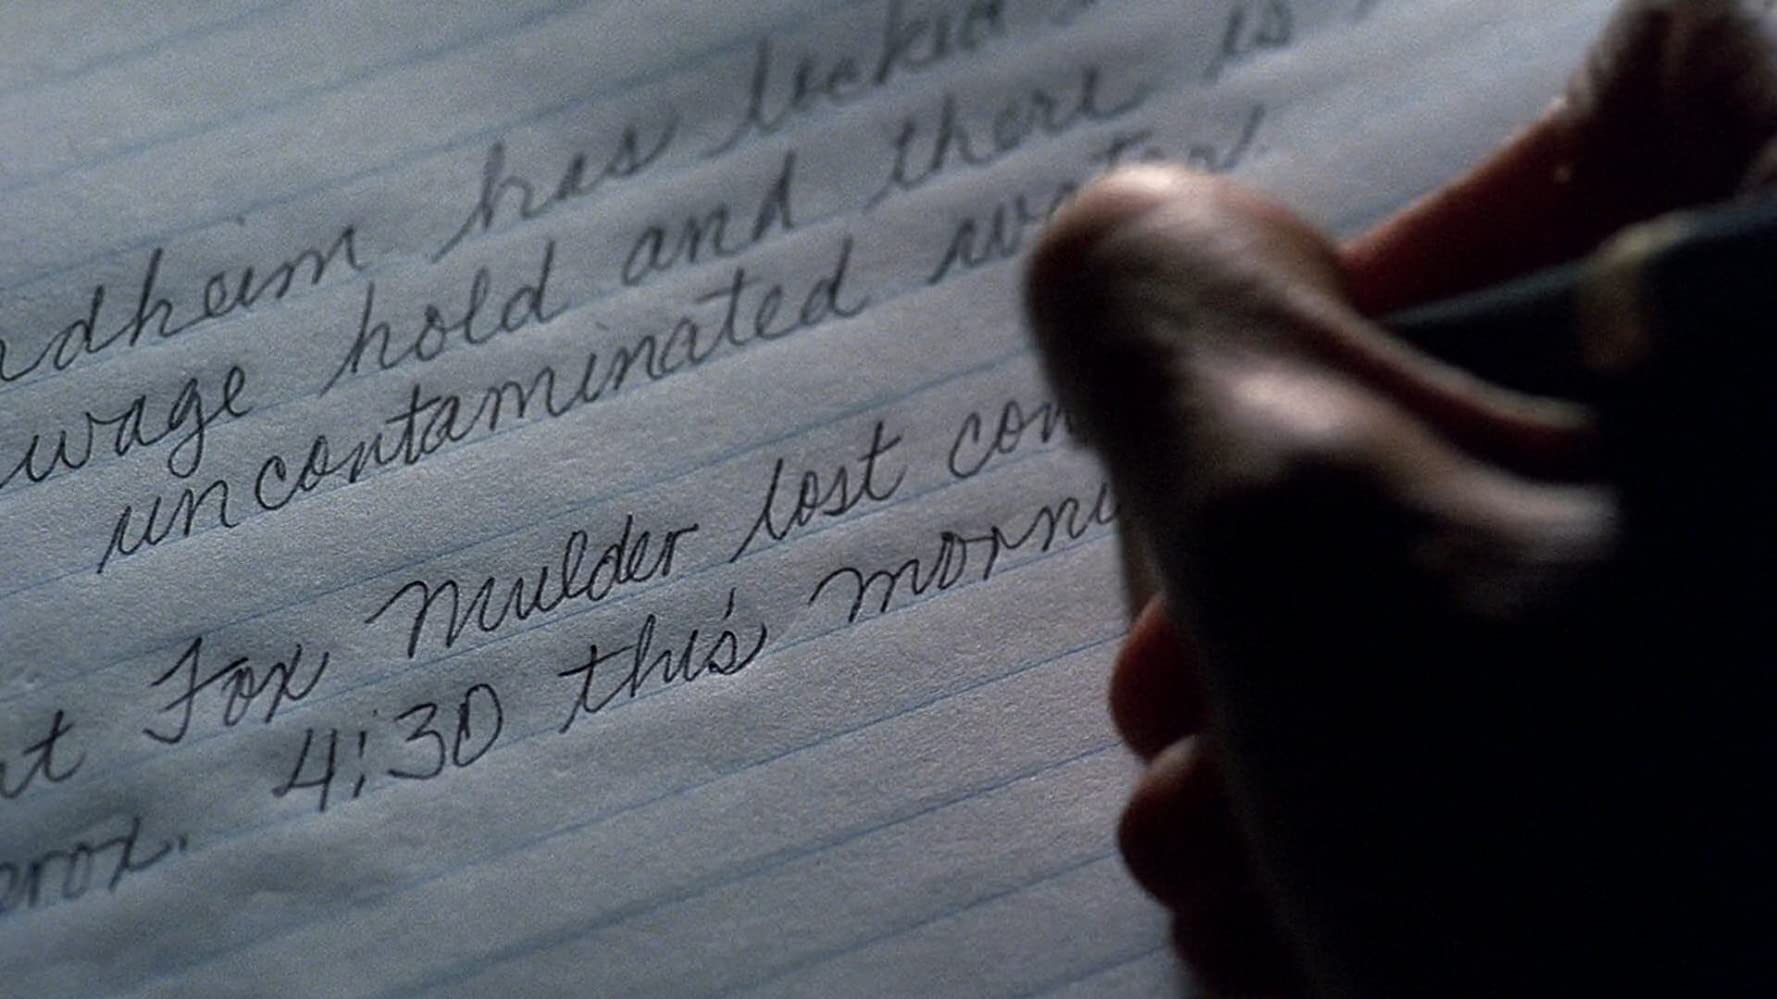 ndheim has leaked
wage hold and there is
uncontaminated
nt Fox Mulder lost con
erox. 4:30 this morni